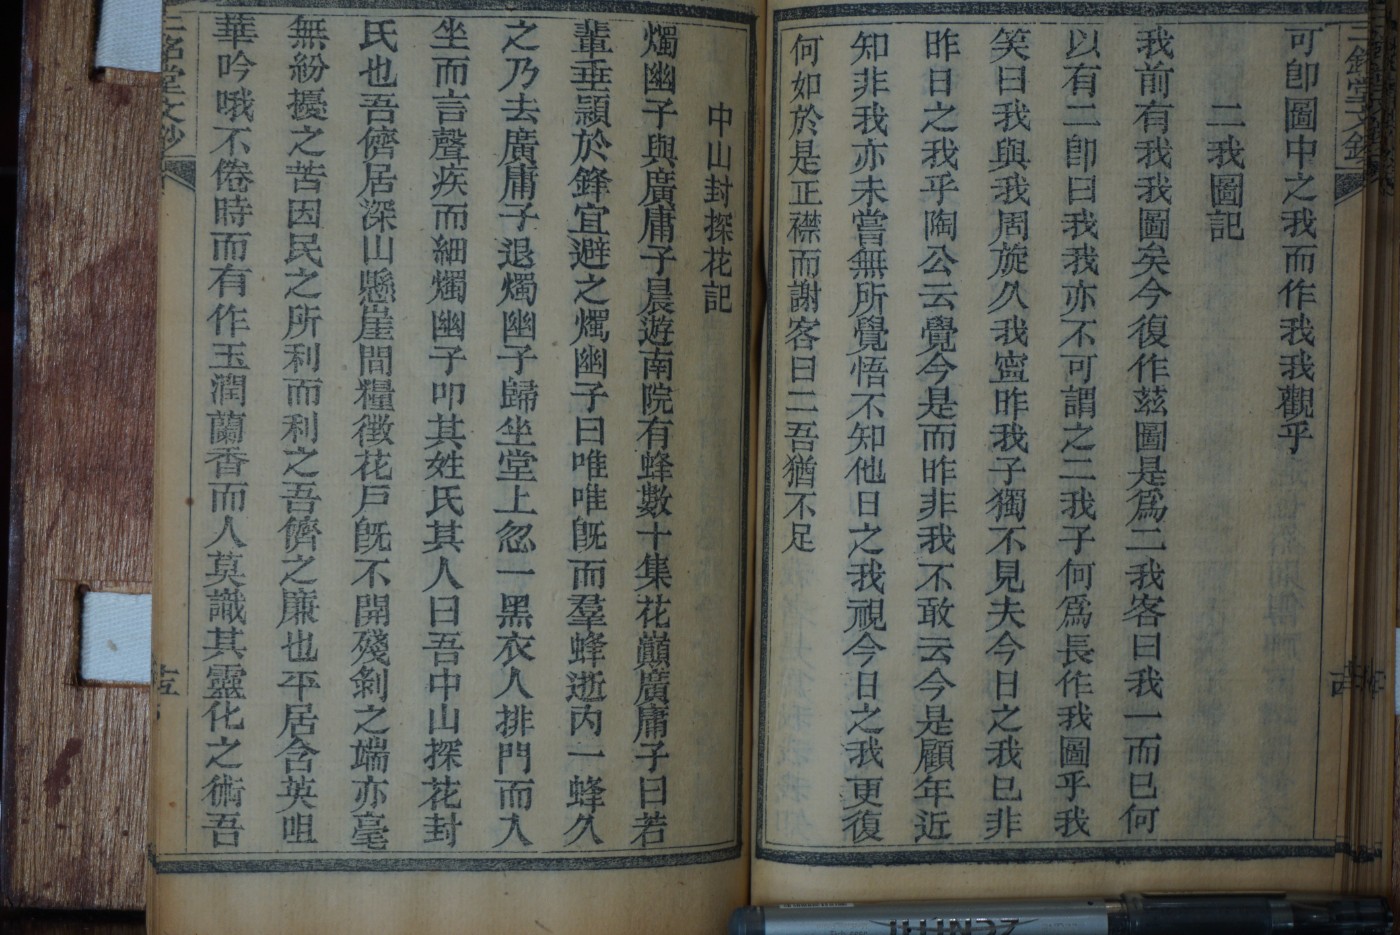 可卽圖中之我而作我我觀乎
二我圖記
我前有我我圖矣今復作玆圖是爲二我客曰我一而已何
以有二卽曰我我亦不可謂之二我子何爲長作我圖乎我
笑曰我與我周旋久我寍昨我子獨不見夫今日之我已非
昨日之我乎陶公云覺今是而昨非我不敢云今是顧年近
知非我亦未嘗無所覺悟不知他日之我視今日之我更復
何如於是正襟而謝客曰二吾猶不足
中山封探花記
燭幽子與廣庸子晨遊南院有蜂數十集花巓廣庸子曰若
輩垂穎於鋒宜避之燭幽子曰唯唯旣而羣蜂逝內一蜂久
之乃去廣庸子退燭幽子歸坐堂上忽一黑衣人排門而入
坐而言聲疾而細燭幽子叩其姓氏其人曰吾中山探花封
氏也吾儕居深山懸崖間糧徵花戶旣不開殘剝之端亦毫
無紛擾之苦因民之所利而利之吾儕之廉也平居含英咀
華吟哦不倦時而有作玉潤蘭香而人莫識其靈化之術吾